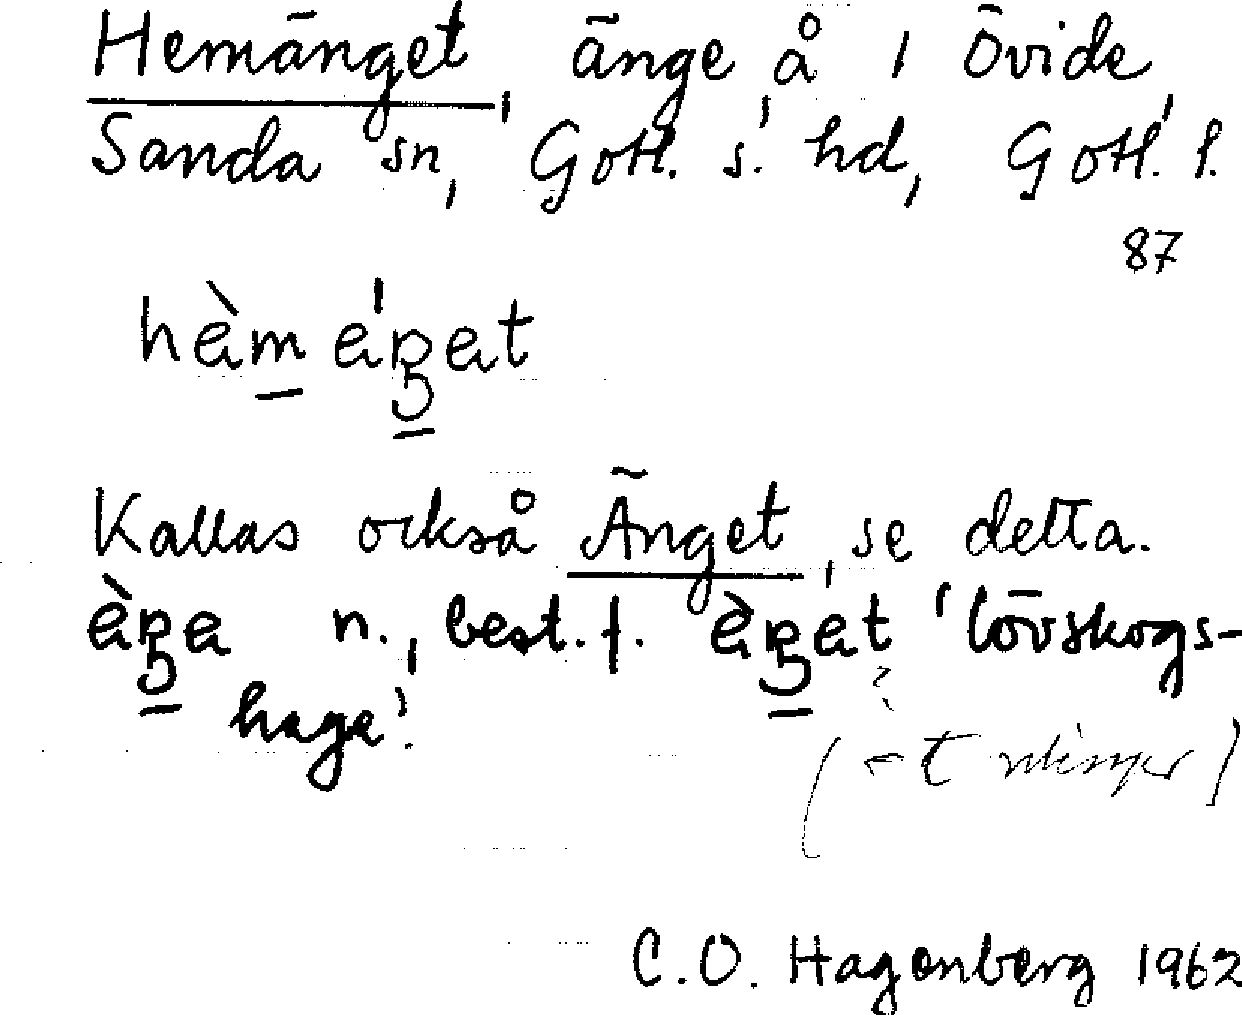 Hemänget, änge å 1 Övide,
Sanda sn, Gotl. s. hd, Gotl. l.
87
hèm éŋet
Kallas också Änget, se detta.
èŋe n., best. f. èŋet 'lövskogs-
hage'.
(-t
C.O. Hagenberg 1962